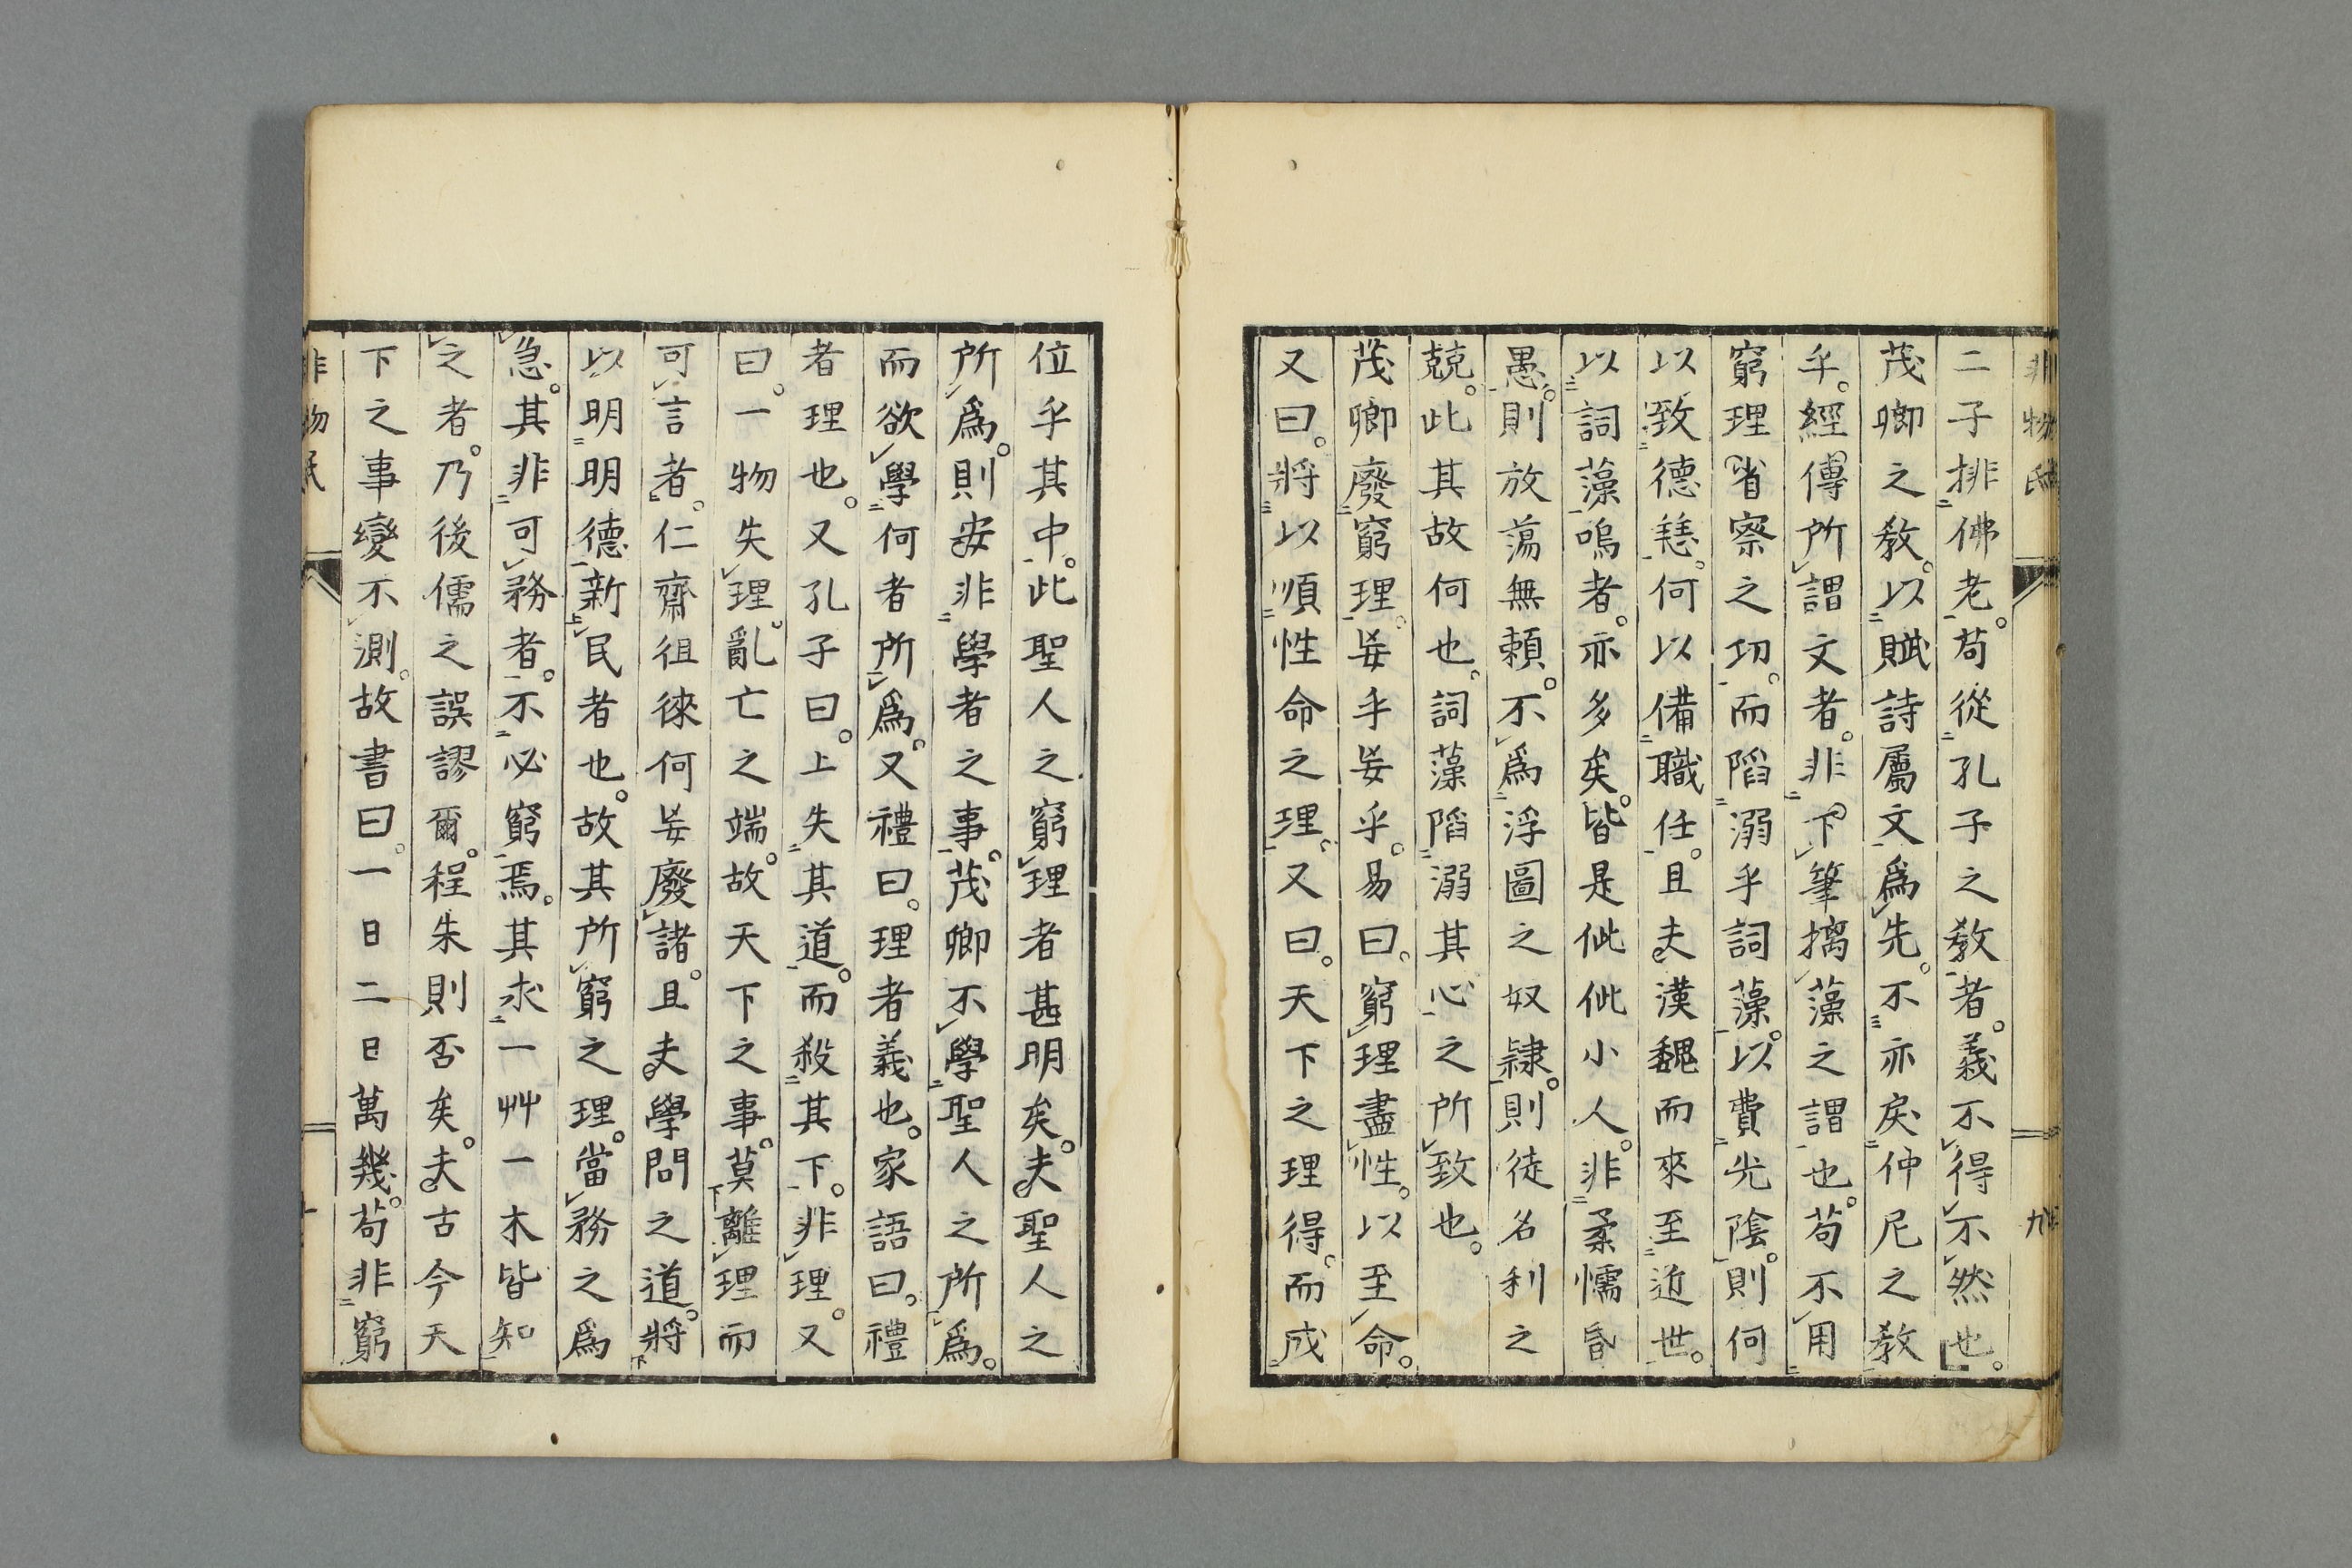 非物氏
九
二子排佛老。苟從孔子之教者。義不得不然也。
茂卿之教。以賦詩屬文爲先。不亦戾仲尼之教
乎。經傳所謂文者。非下筆摛藻之謂也。苟不用
窮理省察之功。而陷溺乎詞藻。以費光陰。則何
以致德慧。何以備職任。且夫漢魏而來至近世。
以詞藻鳴者。亦多矣。皆是佌佌小人。非柔懦昏
愚。則放蕩無賴。不爲浮圖之奴隷。則徒名利之
兢。此其故何也。詞藻陷溺其心之所致也。
茂卿廢窮理。妄乎妄乎。易曰。窮理盡性。以至命。
又曰。將以順性命之理。又曰。天下之理得。而成
位乎其中。此聖人之窮理者甚明矣。夫聖人之
所爲。則安非學者之事。茂卿不學聖人之所爲。
而欲學何者所爲。又禮曰。理者義也。家語曰。禮
者理也。又孔子曰。上失其道。而殺其下。非理。又
曰。一物失理。亂亡之端。故天下之事。莫離理而
可言者。仁齋徂徠何妄廢諸。且夫學問之道。將
以明明德新民者也。故其所窮之理。當務之爲
急。其非可務者。不必窮焉。其求一艸一木皆知
之者。乃後儒之誤謬爾。程朱則否矣。夫古今天
下之事變不測。故書曰。一日二日萬幾。苟非窮
非物氏